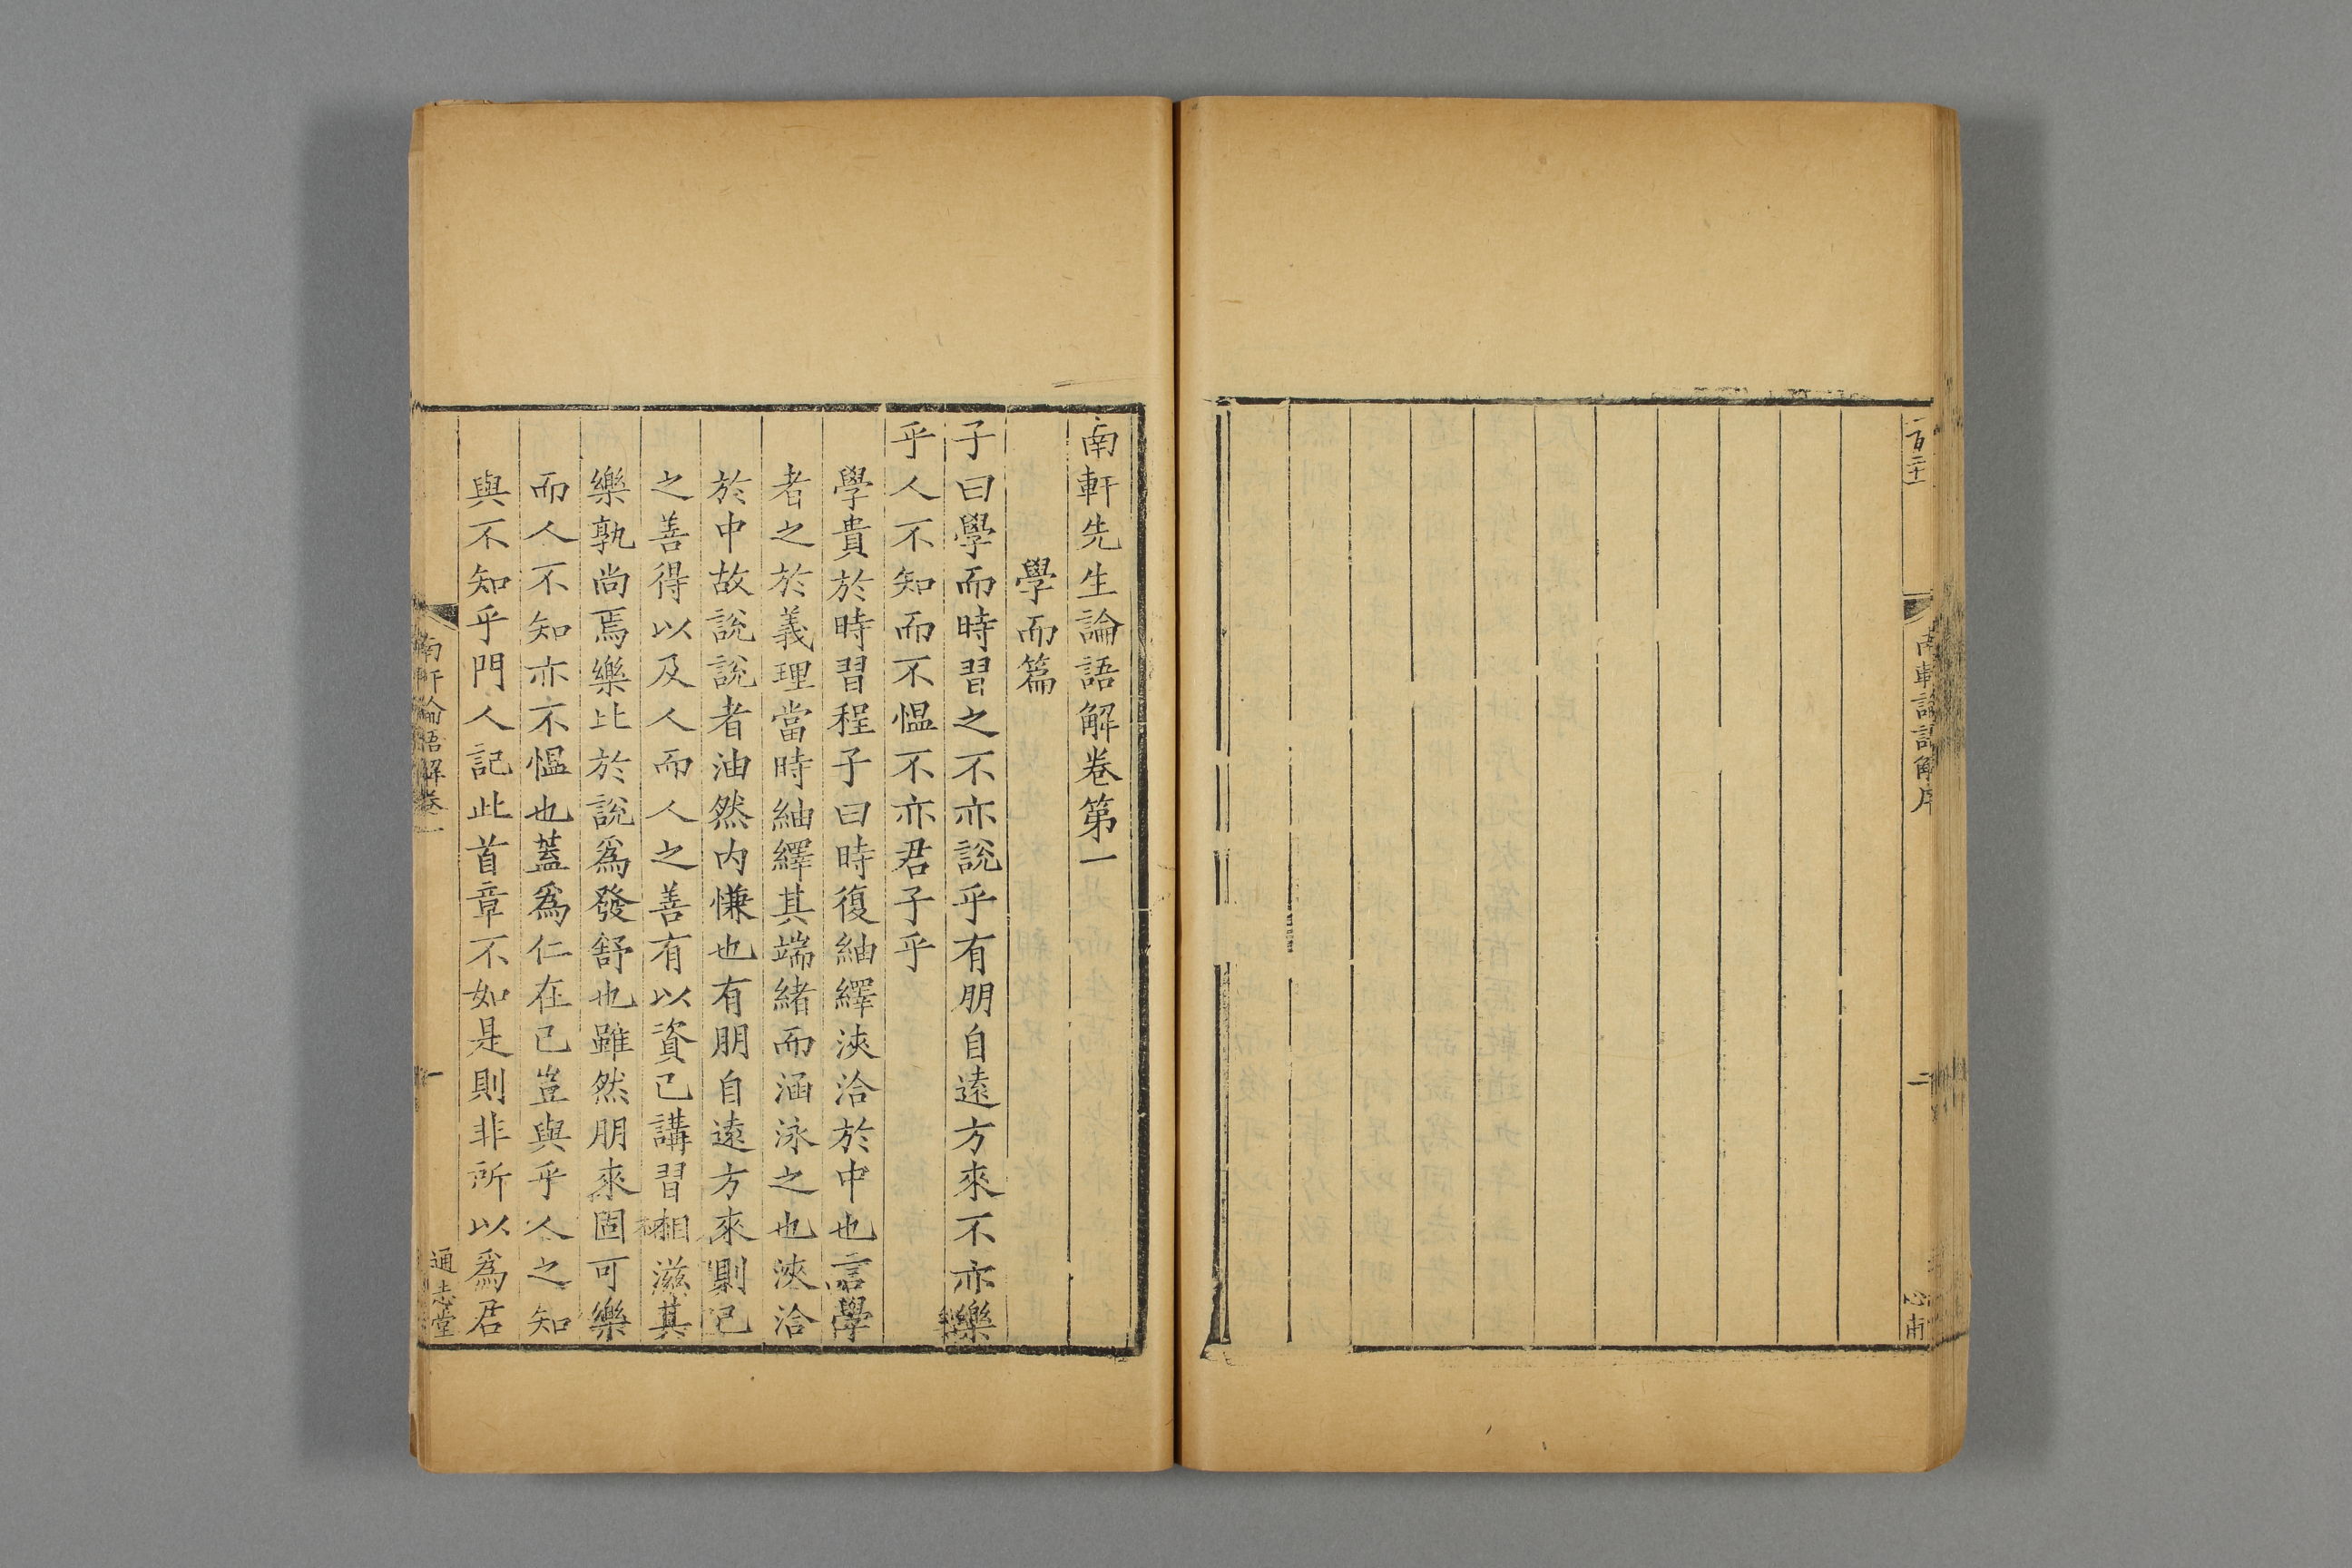 百二十
南軒論語解序
二
心甫
南軒先生論語解卷第一
學而篇
子曰學而時習之不亦說乎有朋自遠方來不亦樂
乎人不知而不慍不亦君子乎
學貴於時習程子曰時復紬繹浹洽於中也言學
者之於義理當時紬繹其端緒而涵泳之也浹洽
於中故說說者油然内慊也有朋自遠方來則已
之善得以及人而人之善有以資已講習相滋其
樂孰尚焉樂比於說爲發舒也雖然朋來固可樂
而人不知亦不慍也蓋爲仁在已豈與乎人之知
與不知乎門人記此首章不如是則非所以爲君
南軒論語解卷一
一
通志堂